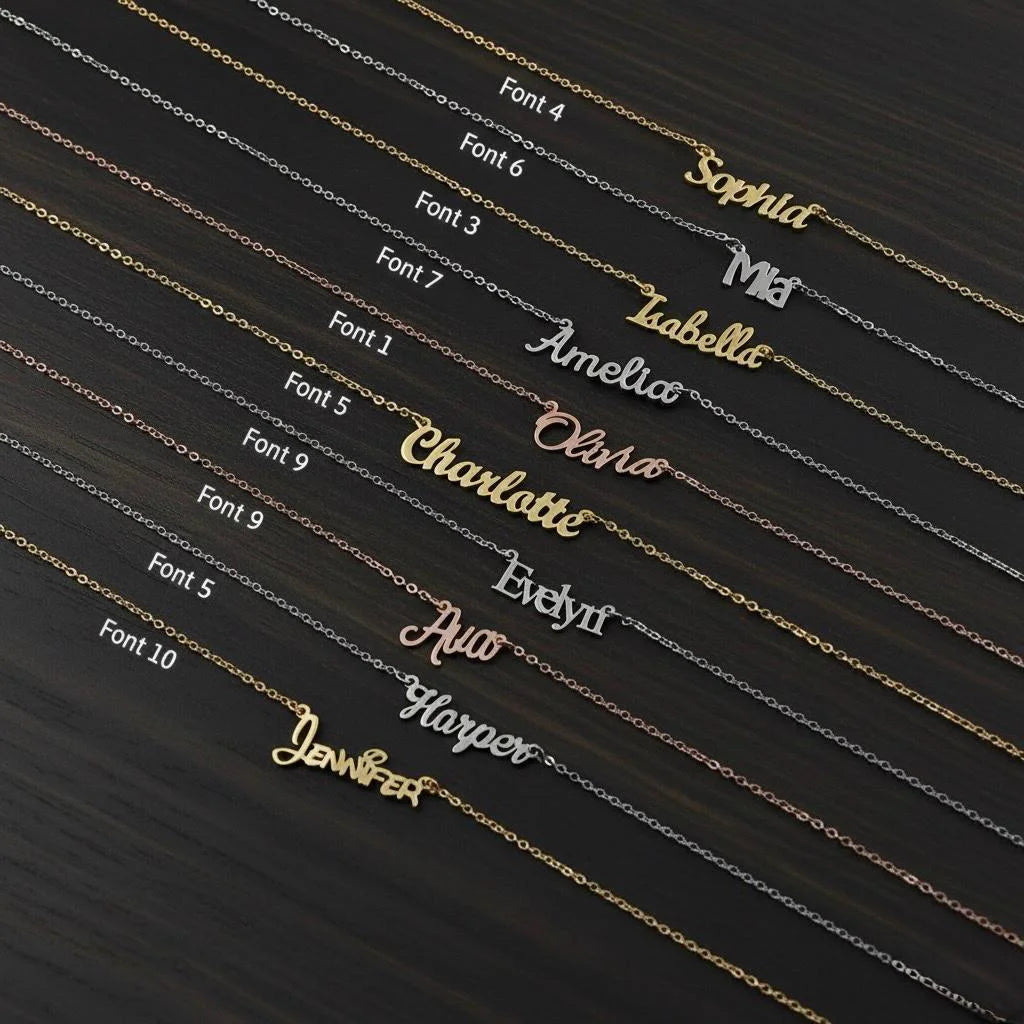 Font 4
Sophia
Font 6
Mia
Font 3
Isabella
Font 7
Amelia
Font 1
Olivia
Font 5
Charlotte
Font 9
Evelyn
Font 9
Ava
Font 5
Harper
Font 10
JENNIFER